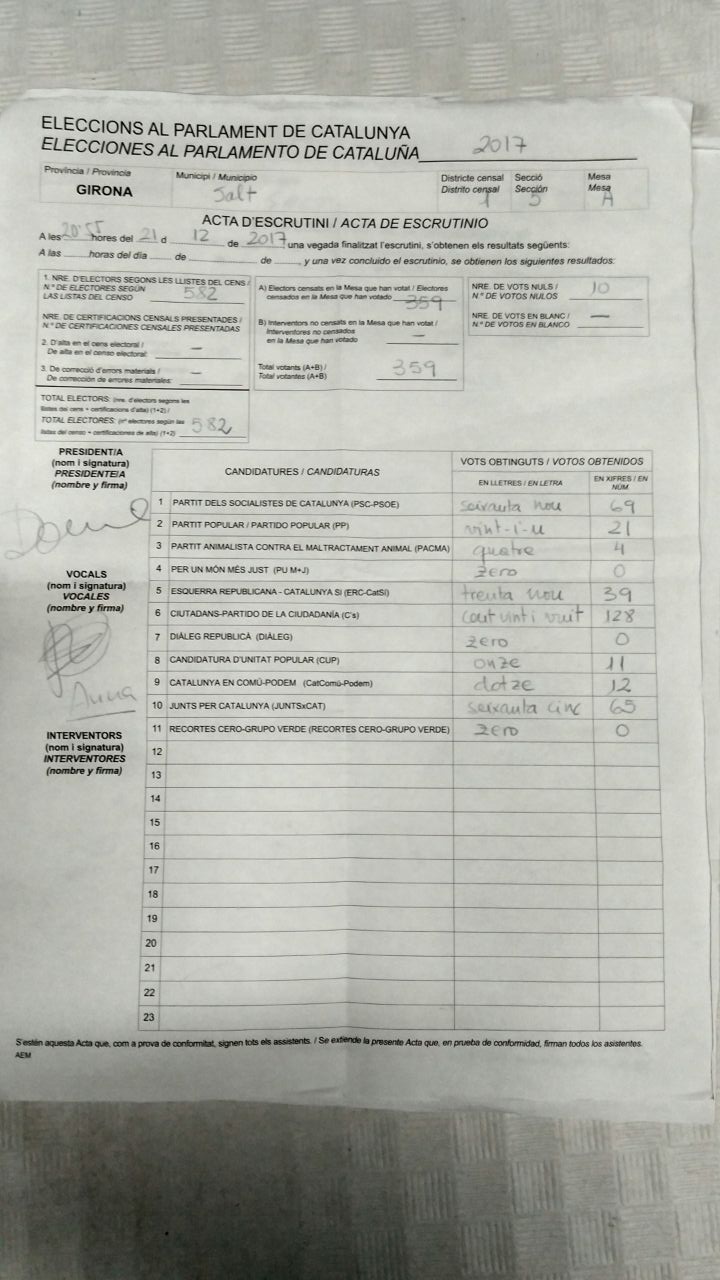 ELECCIONS AL PARLAMENT DE CATALUNYA
ELECCIONES AL PARLAMENTO DE CATALUÑA 2017
Província / Provincia
GIRONA
Municipi / Municipio
Salt
Districte censal
Distrito censal 1
Secció
Sección 5
Mesa
Mesa A
ACTA D'ESCRUTINI / ACTA DE ESCRUTINIO
A les 20'55 hores del 21 d 12 de 2017, una vegada finalitzat l'escrutini, s'obtenen els resultats següents:
A las ........ horas del día ........ de ........ de ........, y una vez concluido el escrutinio, se obtienen los siguientes resultados:
1. NRE. D'ELECTORS SEGONS LES LLISTES DEL CENS /
N.º DE ELECTORES SEGÚN
LAS LISTAS DEL CENSO 582
NRE. DE CERTIFICACIONS CENSALS PRESENTADES /
N.º DE CERTIFICACIONES CENSALES PRESENTADAS
2. D'alta en el cens electoral /
De alta en el censo electoral: —
3. De correcció d'errors materials /
De corrección de errores materiales: —
TOTAL ELECTORS: (nre. d'electors segons les
llistes del cens + certificacions d'alta) (1+2) /
TOTAL ELECTORES: (nº electores según las
listas del censo + certificaciones de alta) (1+2) 582
A) Electors censats en la Mesa que han votat / Electores
censados en la Mesa que han votado 359
B) Interventors no censats en la Mesa que han votat /
Interventores no censados
en la Mesa que han votado —
Total votants (A+B) /
Total votantes (A+B) 359
NRE. DE VOTS NULS /
N.º DE VOTOS NULOS 10
NRE. DE VOTS EN BLANC /
N.º DE VOTOS EN BLANCO —
PRESIDENT/A
(nom i signatura)
PRESIDENTE/A
(nombre y firma)
VOCALS
(nom i signatura)
VOCALES
(nombre y firma)
Anna
INTERVENTORS
(nom i signatura)
INTERVENTORES
(nombre y firma)
CANDIDATURES / CANDIDATURAS
VOTS OBTINGUTS / VOTOS OBTENIDOS
EN LLETRES / EN LETRA
EN XIFRES / EN NÚM
1 PARTIT DELS SOCIALISTES DE CATALUNYA (PSC-PSOE) seixanta nou 69
2 PARTIT POPULAR / PARTIDO POPULAR (PP) vint-i-u 21
3 PARTIT ANIMALISTA CONTRA EL MALTRACTAMENT ANIMAL (PACMA) quatre 4
4 PER UN MÓN MÉS JUST (PU M+J) zero 0
5 ESQUERRA REPUBLICANA - CATALUNYA SÍ (ERC-CatSí) trenta nou 39
6 CIUTADANS-PARTIDO DE LA CIUDADANÍA (C's) cent vint i vuit 128
7 DIÀLEG REPUBLICÀ (DIÀLEG) zero 0
8 CANDIDATURA D'UNITAT POPULAR (CUP) onze 11
9 CATALUNYA EN COMÚ-PODEM (CatComú-Podem) dotze 12
10 JUNTS PER CATALUNYA (JUNTSxCAT) seixanta cinc 65
11 RECORTES CERO-GRUPO VERDE (RECORTES CERO-GRUPO VERDE) zero 0
12
13
14
15
16
17
18
19
20
21
22
23
S'estén aquesta Acta que, com a prova de conformitat, signen tots els assistents. / Se extiende la presente Acta que, en prueba de conformidad, firman todos los asistentes.
AEM